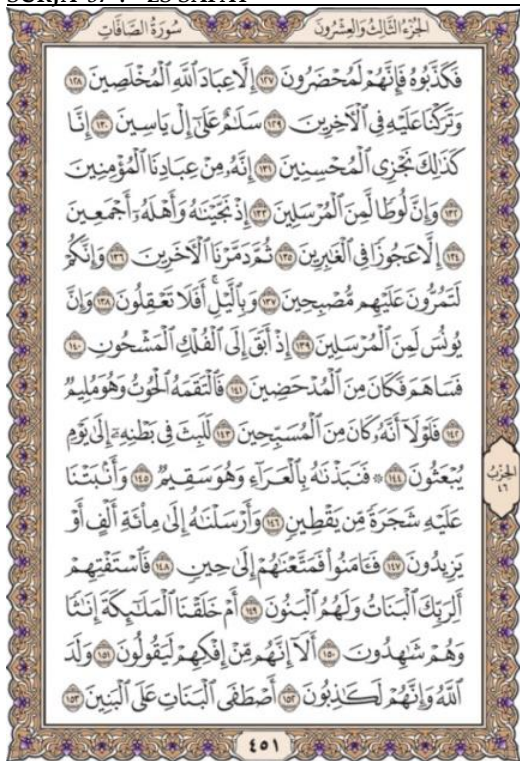 الجُزْءُ الثَّالِثُ وَالعِشْرُونَ سُورَةُ الصَّافَاتِ
فَكَذَّبُوهُ فَإِنَّهُمْ لَمُحْضَرُونَ ١٢٧ إِلَّا عِبَادَ ٱللَّهِ ٱلْمُخْلَصِينَ ١٢٨
وَتَرَكْنَا عَلَيْهِ فِي ٱلْأَخِرِينَ ١٢٩ سَلَـٰمٌ عَلَىٰٓ إِلْ يَاسِينَ ١٣٠ إِنَّا
كَذَٰلِكَ نَجْزِي ٱلْمُحْسِنِينَ ١٣١ إِنَّهُۥ مِنْ عِبَادِنَا ٱلْمُؤْمِنِينَ
١٣٢ وَإِنَّ لُوطًا لَّمِنَ ٱلْمُرْسَلِينَ ١٣٣ إِذْ نَجَّيْنَـٰهُ وَأَهْلَهُۥٓ أَجْمَعِينَ
١٣٤ إِلَّا عَجُوزًا فِي ٱلْغَـٰبِرِينَ ١٣٥ ثُمَّ دَمَّرْنَا ٱلْأَخَرِينَ ١٣٦ وَإِنَّكُمْ
لَتَمُرُّونَ عَلَيْهِم مُّصْبِحِينَ ١٣٧ وَبِٱلَّيْلِ ۗ أَفَلَا تَعْقِلُونَ ١٣٨ وَإِنَّ
يُونُسَ لَمِنَ ٱلْمُرْسَلِينَ ١٣٩ إِذْ أَبَقَ إِلَى ٱلْفُلْكِ ٱلْمَشْحُونِ ١٤٠
فَسَاهَمَ فَكَانَ مِنَ ٱلْمُدْحَضِينَ ١٤١ فَٱلْتَقَمَهُ ٱلْحُوتُ وَهُوَ مُلِيمٌ
١٤٢ فَلَوْلَآ أَنَّهُۥ كَانَ مِنَ ٱلْمُسَبِّحِينَ ١٤٣ لَلَبِثَ فِي بَطْنِهِۦٓ إِلَىٰ يَوْمِ
يُبْعَثُونَ ١٤٤ ۞ فَنَبَذْنَـٰهُ بِٱلْعَرَآءِ وَهُوَ سَقِيمٌ ١٤٥ وَأَنۢبَتْنَا
عَلَيْهِ شَجَرَةً مِّن يَقْطِينٍ ١٤٦ وَأَرْسَلْنَـٰهُ إِلَىٰ مِا۟ئَةِ أَلْفٍ أَوْ
يَزِيدُونَ ١٤٧ فَـَٔامَنُوا۟ فَمَتَّعْنَـٰهُمْ إِلَىٰ حِينٍ ١٤٨ فَٱسْتَفْتِهِمْ
أَلِرَبِّكَ ٱلْبَنَاتُ وَلَهُمُ ٱلْبَنُونَ ١٤٩ أَمْ خَلَقْنَا ٱلْمَلَـٰٓئِكَةَ إِنَـٰثًا
وَهُمْ شَـٰهِدُونَ ١٥٠ أَلَآ إِنَّهُم مِّنْ إِفْكِهِمْ لَيَقُولُونَ ١٥١ وَلَدَ
ٱللَّهُ وَإِنَّهُمْ لَكَـٰذِبُونَ ١٥٢ أَصْطَفَى ٱلْبَنَاتِ عَلَى ٱلْبَنِينَ ١٥٣
الحِزْبُ
٤٦
٤٥١